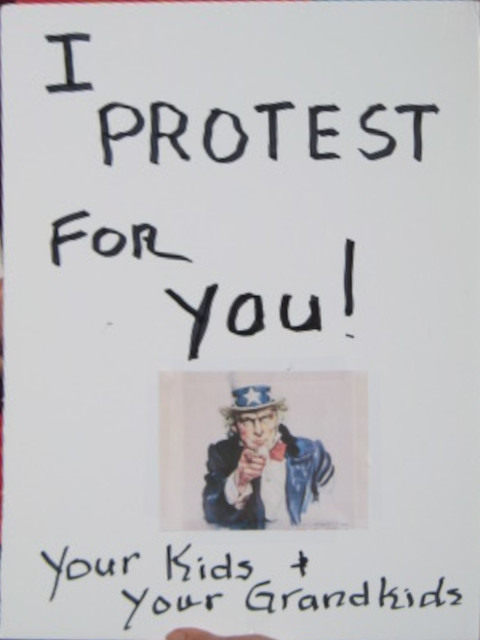 I
PROTEST
FOR
You!
Your Kids +
Your Grandkids